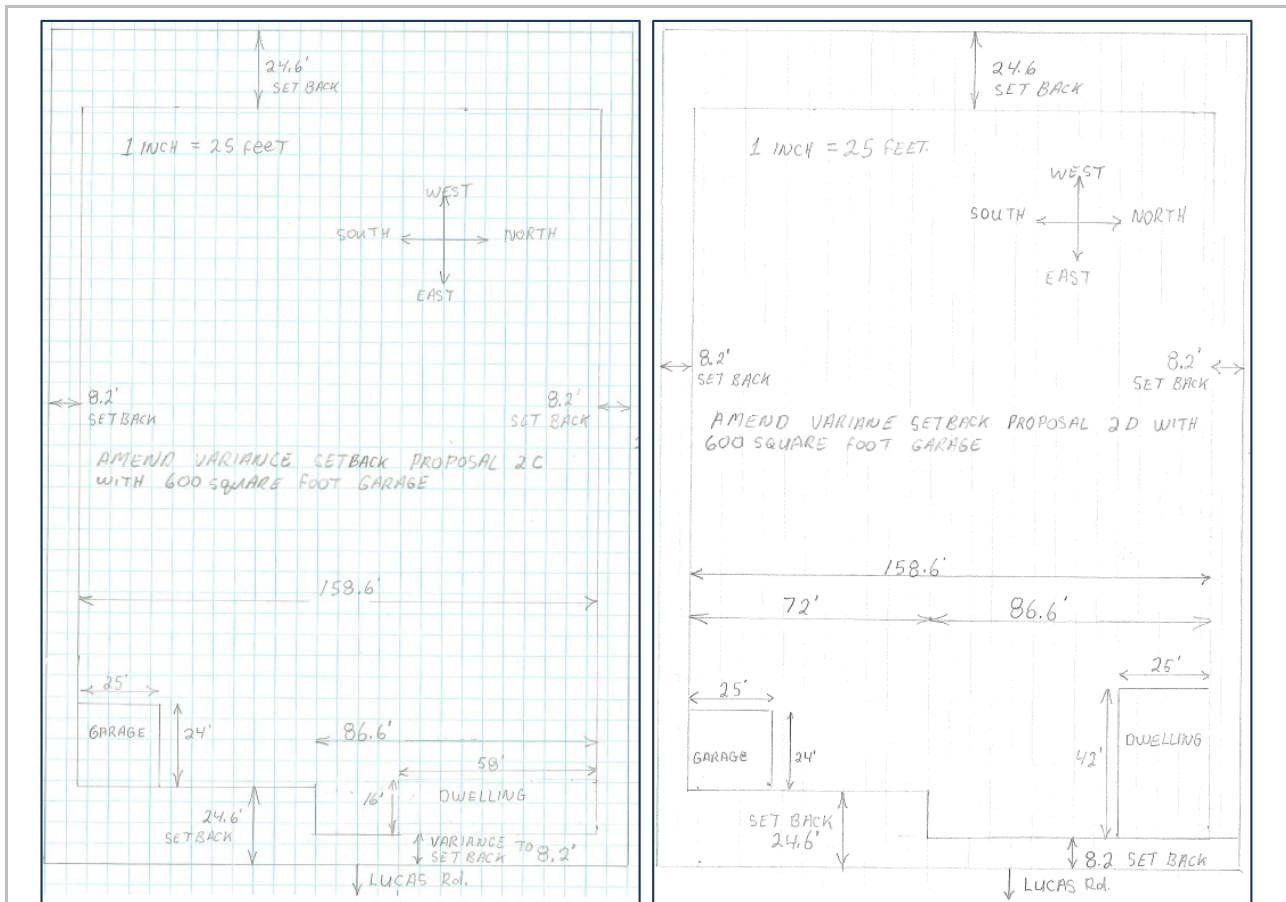 24.6'
SET BACK
1 INCH = 25 FEET
WEST
SOUTH
NORTH
EAST
8.2'
SETBACK
8.2'
SET BACK
AMEND VARIANCE SETBACK PROPOSAL 2C
WITH 600 SQUARE FOOT GARAGE
158.6'
25'
GARAGE
24'
86.6'
58'
16'
DWELLING
24.6'
SETBACK
VARIANCE TO
SET BACK 8.2'
LUCAS Rd.
24.6
SET BACK
1 INCH = 25 FEET.
WEST
SOUTH
NORTH
EAST
8.2'
SET BACK
8.2'
SET BACK
AMEND VARIANE SETBACK PROPOSAL 2D WITH
600 SQUARE FOOT GARAGE
158.6'
72'
86.6'
25'
25'
GARAGE
24'
42'
DWELLING
SET BACK
24.6'
8.2 SET BACK
LUCAS Rd.